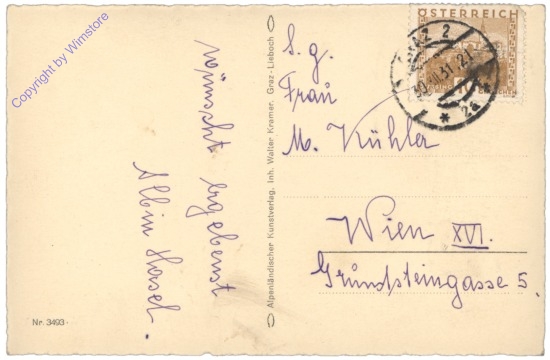 Copyright by Wimstore
wünscht ergebenst
Albin
Nr. 3493
Alpenländischer Kunstverlag. Inh. Walter Kramer. Graz-Lieboch
ÖSTERREICH
GRAZ 2
2a
S. g.
Frau
M. Kühler
Wien XVI.
Grundsteingasse 5.